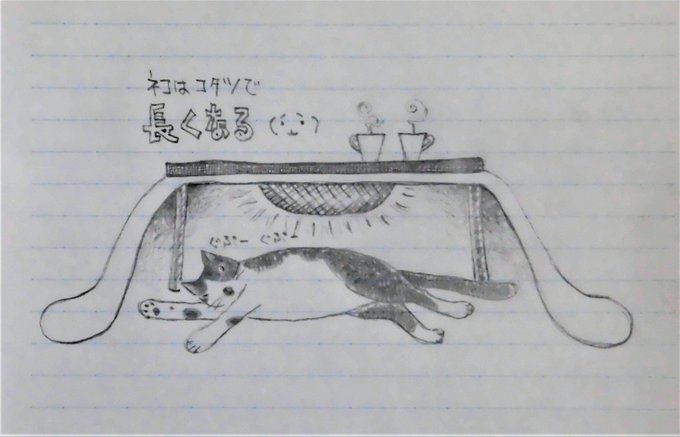 ネコはコダツで
長くなる
ぐぷー ぐぷー